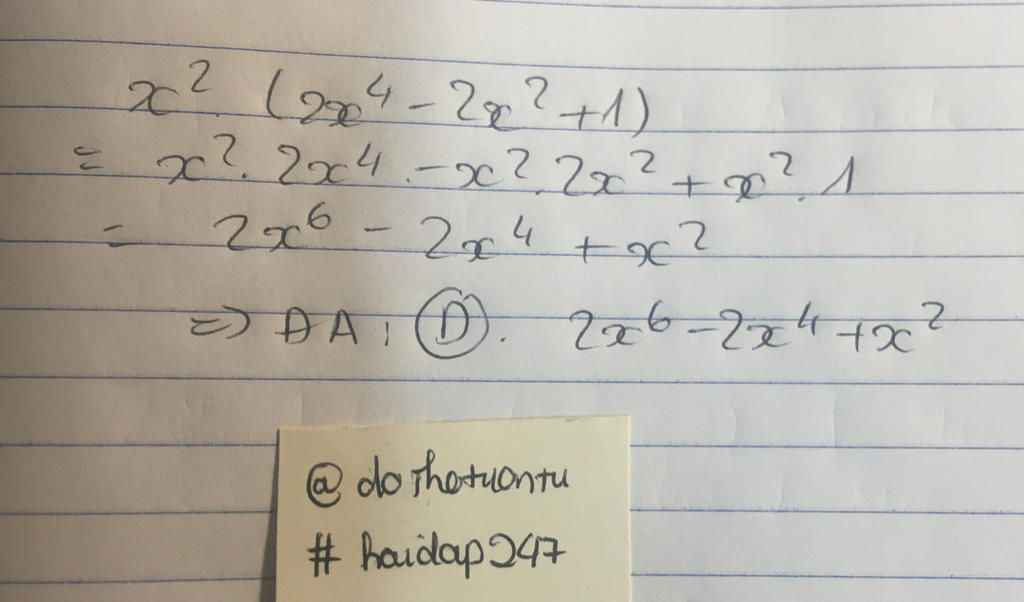 x² (2x⁴ - 2x² + 1)
= x². 2x⁴ - x². 2x² + x². 1
= 2x⁶ - 2x⁴ + x²
=> ĐA: D. 2x⁶ - 2x⁴ + x²
@dothotuantu
#hoidap247